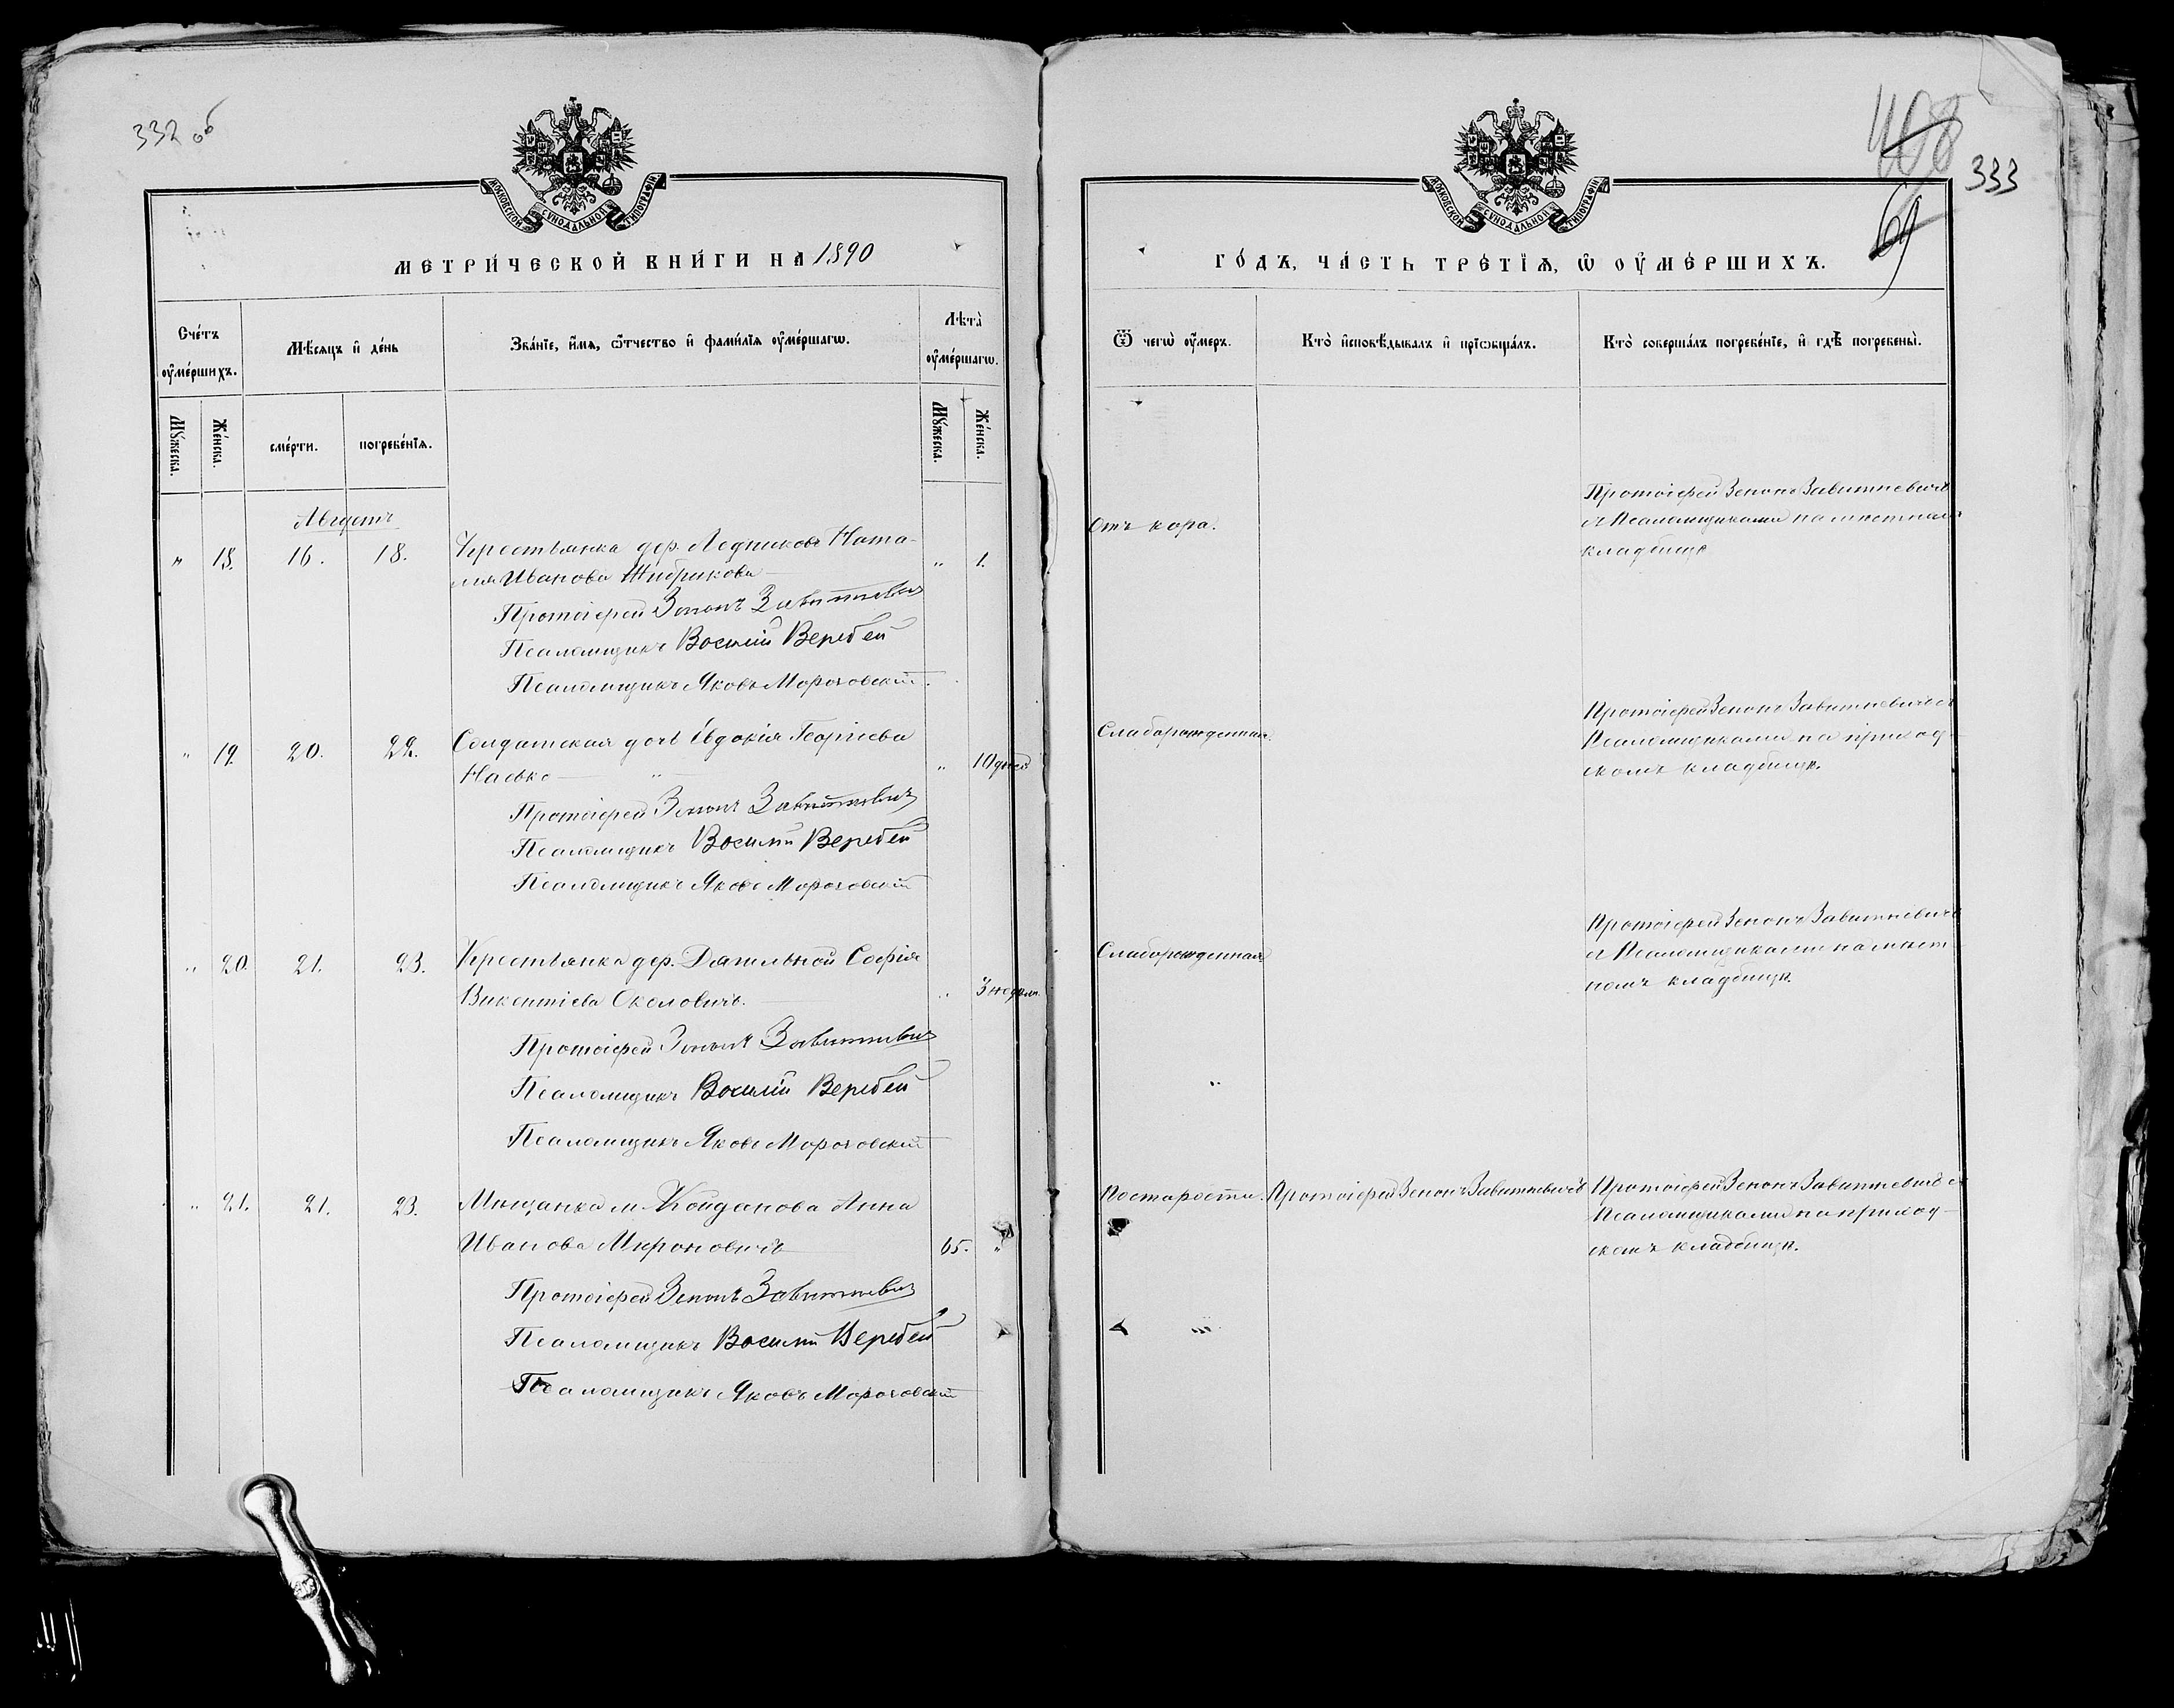 332 об
МОСКОВСКОЙ СѴНОДАЛЬНОЙ ТИПОГРАФІИ
МЕТРИ́ЧЕСКОЙ КНИ́ГИ НА 1890
Сче́тъ оу҆ме́ршихъ.
Мѣ́сяцъ и҆ де́нь
Зва́нїе, и҆́мѧ, ѻ҆́тчество и҆ фами́лїѧ оу҆ме́ршагѡ.
Лѣ́та оу҆ме́ршагѡ.
Мꙋ́жеска.
Же́нска.
сме́рти.
погребе́нїѧ.
Мꙋ́жеска.
Же́нска.
Августъ
„ 18. 16. 18. Крестьянка дер. Ледниковъ Ната- „ 1.
лия Иванова
Протоіерей Зенонъ Завитневичъ
Псаломщикъ Василій Веребей
Псаломщикъ Яковъ Мороховскій.
„ 19. 20. 22. Солдатская дочь Евдокія Георгіева
„ 10 дней
Протоіерей Зенонъ Завитневичъ
Псаломщикъ Василій Веребей
Псаломщикъ Яковъ Мороховскій
„ 20. 21. 23. Крестьянка дер. Софія
Викентіева Околовичъ. „ 3 недѣли
Протоіерей Зенонъ Завитневичъ
Псаломщикъ Василій Веребей
Псаломщикъ Яковъ Мороховскій
„ 21. 21. 23. Мѣщанка м. Койданова Анна
Иванова Мироновичъ 65. „
Протоіерей Зенонъ Завитневичъ
Псаломщикъ Василій Веребей
Псаломщикъ Яковъ Мороховскій
408
333
69
МОСКОВСКОЙ СѴНОДАЛЬНОЙ ТИПОГРАФІИ
ГО́ДЪ, ЧА́СТЬ ТРЕ́ТЇѦ, Ѡ҆ ОУ҆МЕ́РШИХЪ.
Ѿ чегѡ̀ оу҆́меръ.
Кто̀ и҆сповѣ́дывалъ и҆ прїѡбща́лъ.
Кто̀ соверша́лъ погребе́нїе, и҆ гдѣ̀ погребены̀.
Отъ кора.
Протоіерей Зенонъ Завитневичъ
съ Псаломщиками на мѣстномъ
кладбищѣ
Слаборожденная.
Протоіерей Зенонъ Завитневичъ съ
Псаломщиками на приход-
скомъ кладбищѣ.
Слаборожденная
Протоіерей Зенонъ Завитневичъ
съ Псаломщиками на мѣст-
номъ кладбищѣ.
По старости. Протоіерей Зенонъ Завитневичъ Протоіерей Зенонъ Завитневичъ съ
Псаломщиками на приход-
скомъ кладбищѣ.